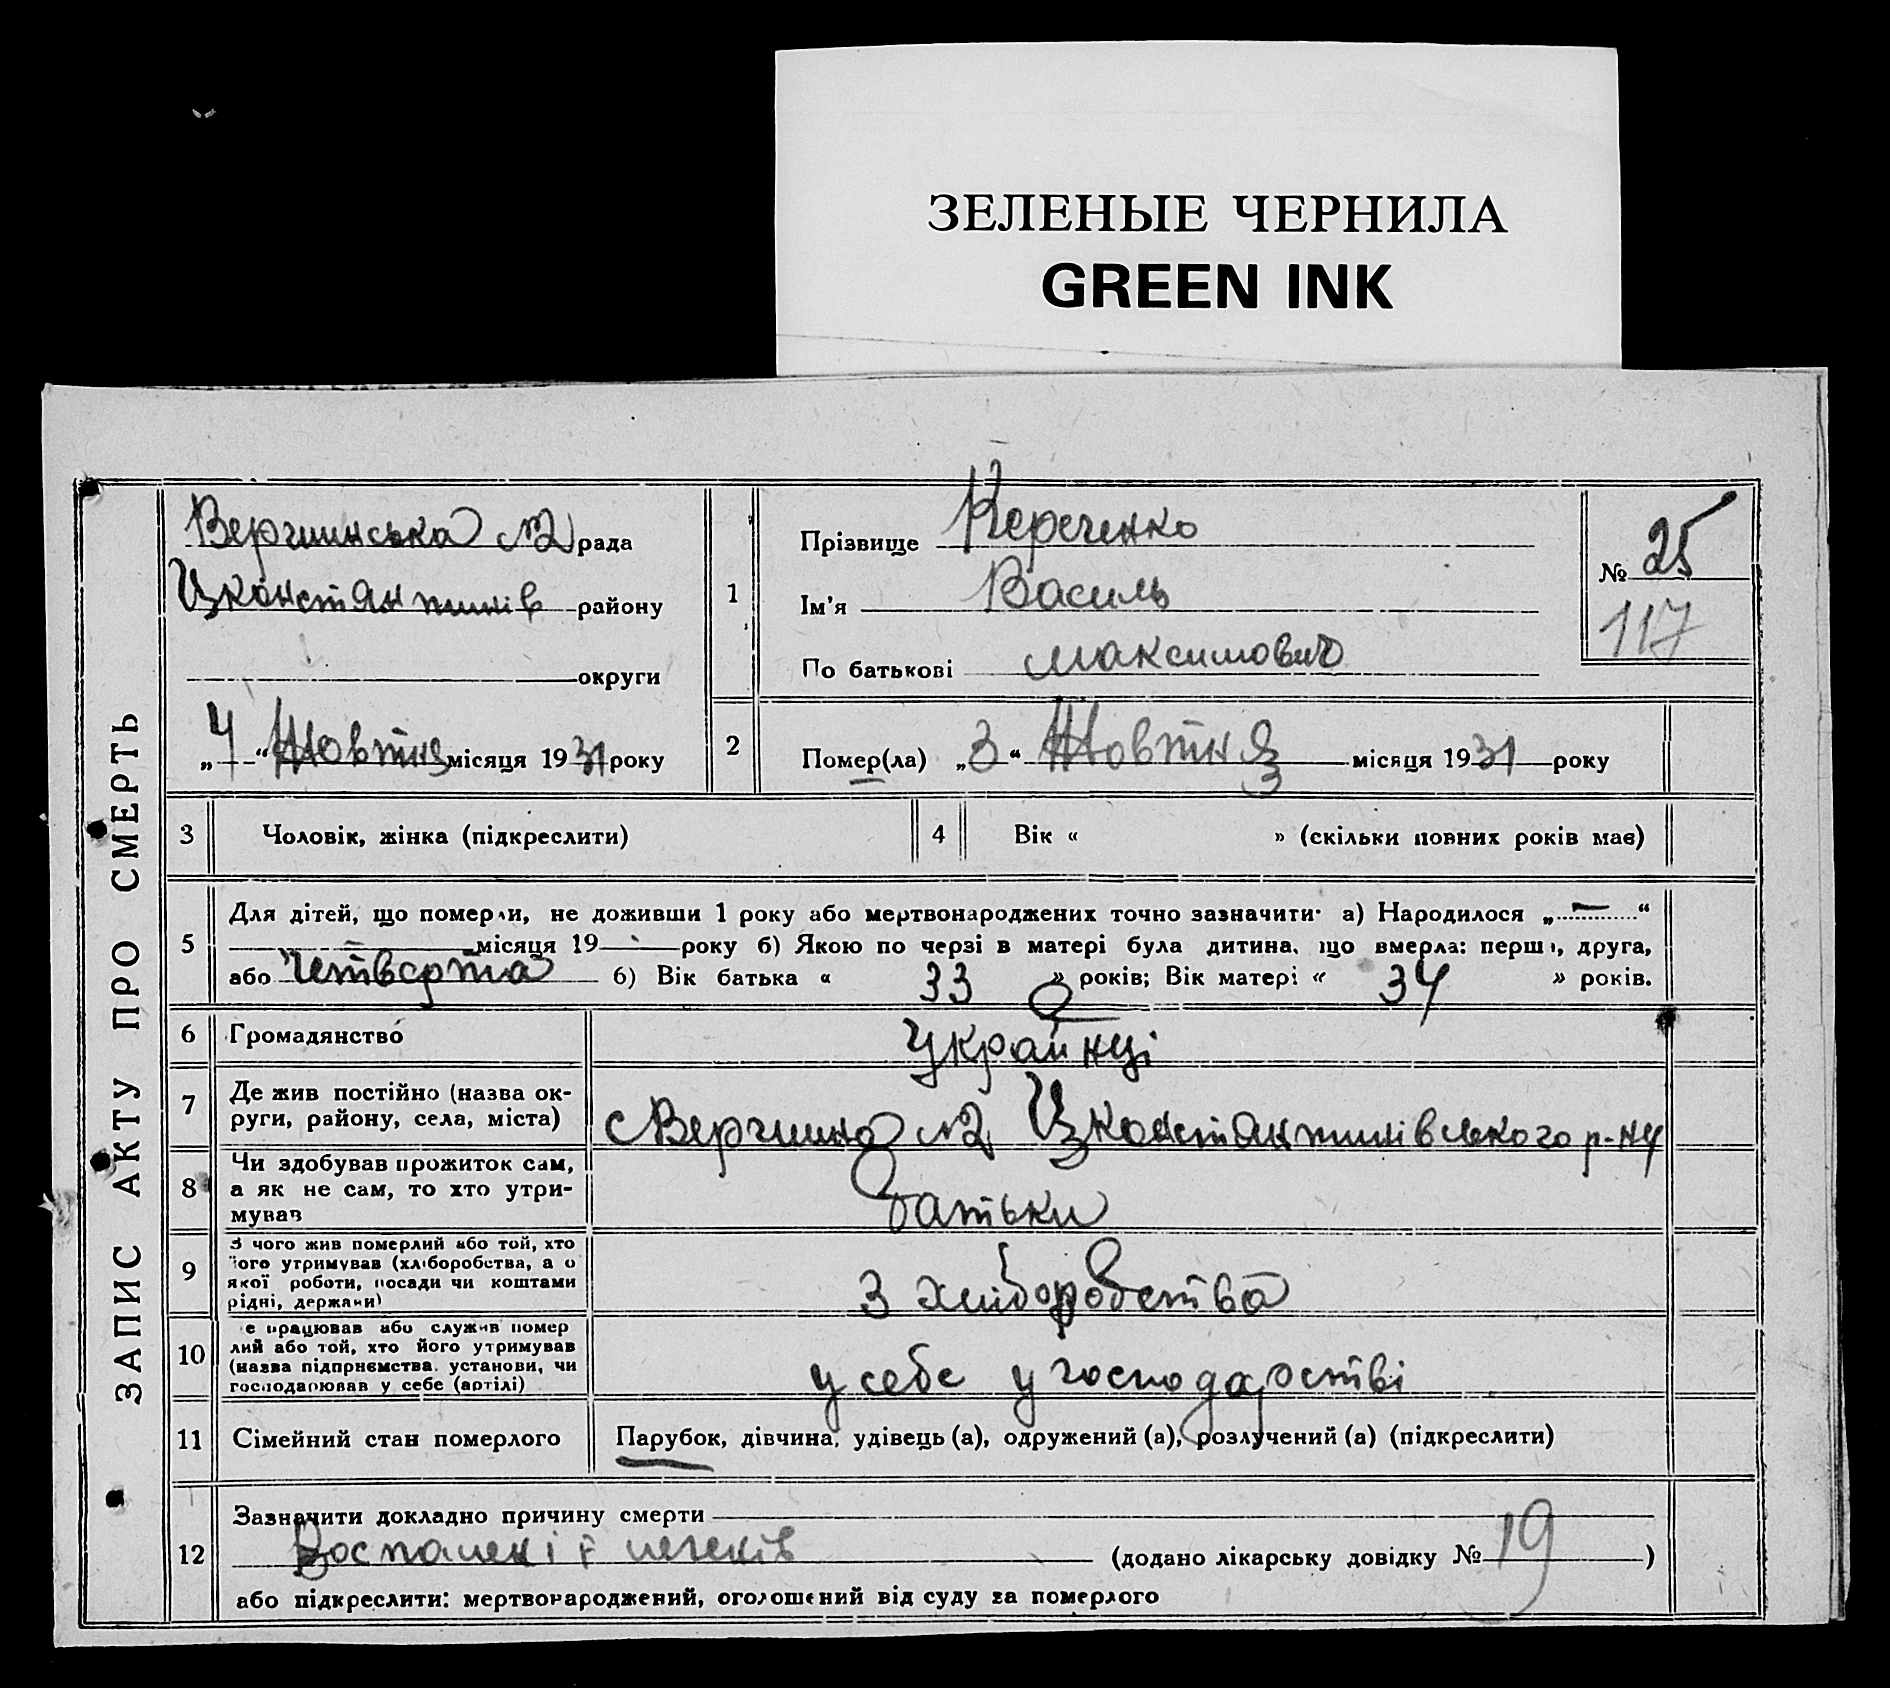 ЗЕЛЕНЫЕ ЧЕРНИЛА
GREEN INK
ЗАПИС АКТУ ПРО СМЕРТЬ
Вершинська №2 рада
Цконстянтинів району
округи
„4“ Жовтня місяця 1931 року
1
Прізвище Кереченко
Ім'я Василь
По батькові Максимович
№ 25
117
2
Помер(ла) „3“ Жовтня місяця 1931 року
3 Чоловік, жінка (підкреслити)
4 Вік « » (скільки повних років має)
5 Для дітей, що померли, не доживши 1 року або мертвонароджених точно зазначити· а) Народилося „—“
місяця 19— року б) Якою по черзі в матері була дитина, що вмерла: перша, друга,
або четверта б) Вік батька « 33 » років; Вік матері « 34 » років.
6 Громадянство Українці
7 Де жив постійно (назва ок-
руги, району, села, міста) с Вершина №2 Цконстянтинівського р-ну
8 Чи здобував прожиток сам,
а як не сам, то хто утри-
мував батьки
9 З чого жив померлий або той, хто
його утримував (хліборобства, а о
якої роботи, посади чи коштами
рідні, держави) З хліборобства
10 е працював або служив помер
лий або той, хто його утримував
(назва підприємства, установи, чи
господарював у себе (артілі) у себе у господарстві
11 Сімейний стан померлого Парубок, дівчина, удівець (а), одружений (а), розлучений (а) (підкреслити)
12 Зазначити докладно причину смерти
Воспалені легенів (додано лікарську довідку № 19)
або підкреслити: мертвонароджений, оголошений від суду за померлого